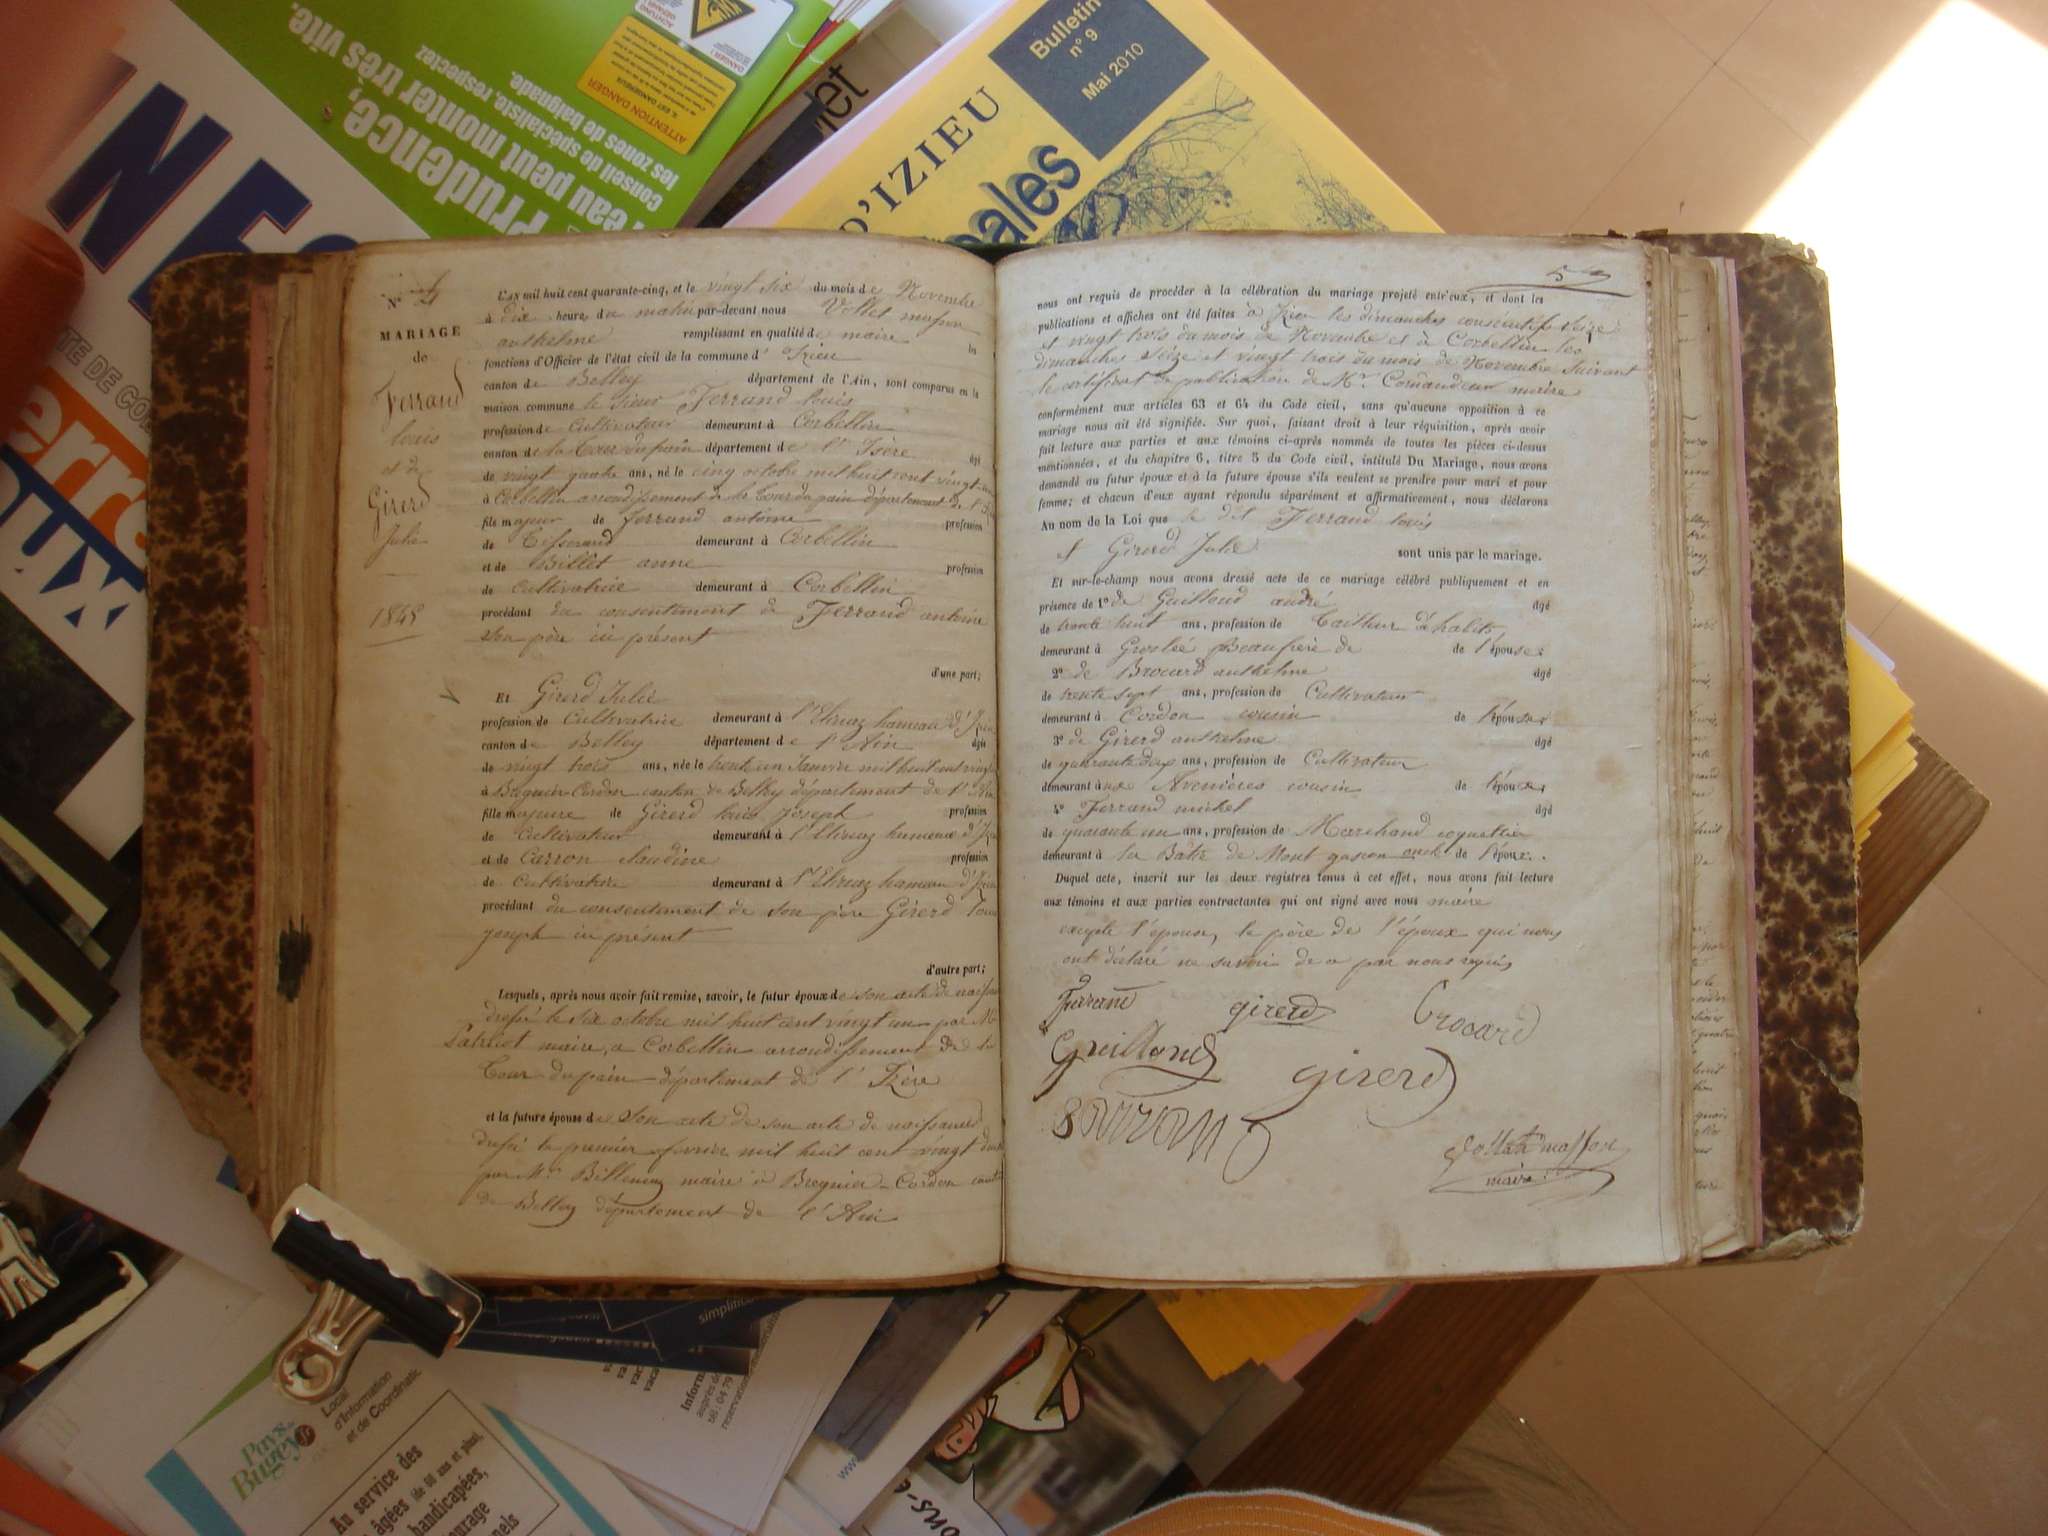 N° 4
MARIAGE
de
Ferrand
louis
et de
Girerd
Julie
1845
L'AN mil huit cent quarante-cinq, et le vingt six du mois de Novembre
à dix heure du matin par-devant nous Vollet masson
anthelme remplissant en qualité de maire les
fonctions d'Officier de l'état civil de la commune d' Izieu
canton de Belley département de l'Ain, sont comparus en la
maison commune le sieur Ferrand louis
profession de Cultivateur demeurant à Corbellin
canton de la Tour du pin département de l'Isère âgé
de vingt quatre ans, né le cinq octobre mil huit cent vingt un
à Corbellin arrondissement de la Tour du pin département de l'
fils majeur de Ferrand antoine profession
de Tisserand demeurant à Corbellin
et de Billet anne profession
de Cultivatrice demeurant à Corbellin
procédant du consentement de Ferrand antoine
son père ici présent
d'une part;
Et Girerd Julie
profession de Cultivatrice demeurant à l'Etruaz hameau d'Izieu
canton de Belley département de l'Ain âgée
de vingt trois ans, née le trente un Janvier mil huit cent vingt
à Bregnier-Cordon canton de Belley département de l'Ain
fille majeure de Girerd louis Joseph profession
de Cultivateur demeurant à l'Etruaz hameau d'Izieu
et de Carron claudine profession
de Cultivatrice demeurant à l'Etruaz hameau d'Izieu
procédant du consentement de son père Girerd louis
joseph ici présent
d'autre part;
Lesquels, après nous avoir fait remise, savoir, le futur époux de son acte de naissance
dressé le six octobre mil huit cent vingt un par Mr
Patricot maire, a Corbellin arrondissement de la
Tour du pin département de l' Izère
et la future épouse de son acte de son acte de naissance
dressé le premier fevrier mil huit cent vingt deux
par Mr maire à Bregnier-Cordon canton
de Belley département de l'Ain
5
nous ont requis de procéder à la célébration du mariage projeté entr'eux, et dont les
publications et affiches ont été faites à Izieu les dimanches consécutifs seize
et vingt trois du mois de Novembre et à Corbellin les
dimanches seize et vingt trois du mois de Novembre suivant
le certificat de publication de Mr. Comandeur maire
conformément aux articles 63 et 64 du Code civil, sans qu'aucune opposition à ce
mariage nous ait été signifiée. Sur quoi, faisant droit à leur réquisition, après avoir
fait lecture aux parties et aux témoins ci-après nommés de toutes les pièces ci-dessus
mentionnées, et du chapitre 6, titre 5 du Code civil, intitulé Du Mariage, nous avons
demandé au futur époux et à la future épouse s'ils veulent se prendre pour mari et pour
femme; et chacun d'eux ayant répondu séparément et affirmativement, nous déclarons
Au nom de la Loi que le dit Ferrand louis
et Girerd Julie sont unis par le mariage.
Et sur-le-champ nous avons dressé acte de ce mariage célébré publiquement et en
présence de 1° de Guilloud andré âgé
de trente huit ans, profession de Tailleur d'habits
demeurant à Groslée Beaufrère de de l'épouse
2° de Brocard anthelme âgé
de trente sept ans, profession de Cultivateur
demeurant à Cordon cousin de l'épouse
3° de Girerd anthelme âgé
de quarante deux ans, profession de Cultivateur
demeurant aux Avenières cousin de l'épouse
4° Ferrand michel âgé
de quarante un ans, profession de Marchand coquettier
demeurant à la Bâtie de Mont gascon oncle de l'époux.
Duquel acte, inscrit sur les deux registres tenus à cet effet, nous avons fait lecture
aux témoins et aux parties contractantes qui ont signé avec nous maire
excepté l'épouse, le père de l'époux qui nous
ont déclaré ne savoir de ce par nous requis
Ferrand girerd Brocard
Guilloud girerd
maire
Prudence,
l'eau peut monter très vite.
conseil de spécialiste, respectez
les zones de baignade.
ATTENTION DANGER
D'IZIEU
Bulletin
n° 9
Mai 2010
Pays
Bugey
Local
d'Information
et de Coordination
Au service des
âgées (de 60 ans et plus),
handicapées,